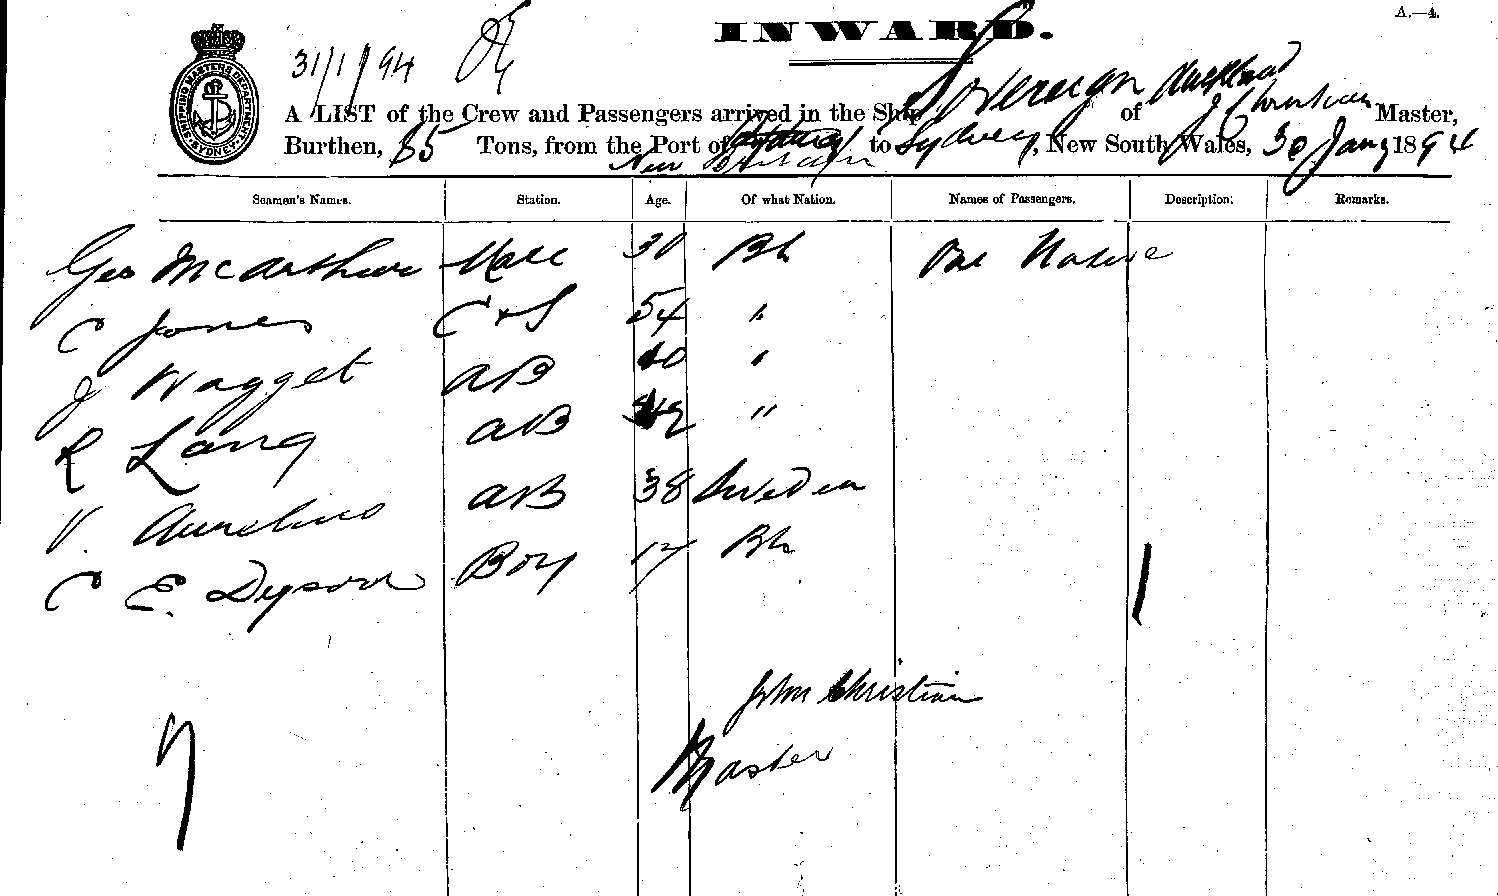 A.—4.
INWARD.
31/1/94
SHIPPING MASTERS DEPARTMENT SYDNEY
A LIST of the Crew and Passengers arrived in the Ship Sovereign of Auckland J Christian Master,
Burthen, 85 Tons, from the Port of New Britain to Sydney, New South Wales, 30 Jany 1894
Seamen's Names. Station. Age. Of what Nation. Names of Passengers. Description. Remarks.
Geo McArthur Mate 30 Bh One Native
C Jones C & S 54 "
J Wagget AB 40 "
R Lang AB 42 "
V. Aurelius AB 38 Sweden
C E. Dyson Boy 17 Bh
John Christian
Master
7
1